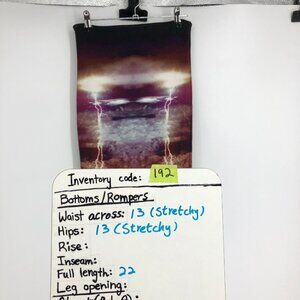 Inventory code: 192
Bottoms/Rompers
Waist across: 13 (Stretchy)
Hips: 13 (Stretchy)
Rise:
Inseam:
Full length: 22
Leg opening: